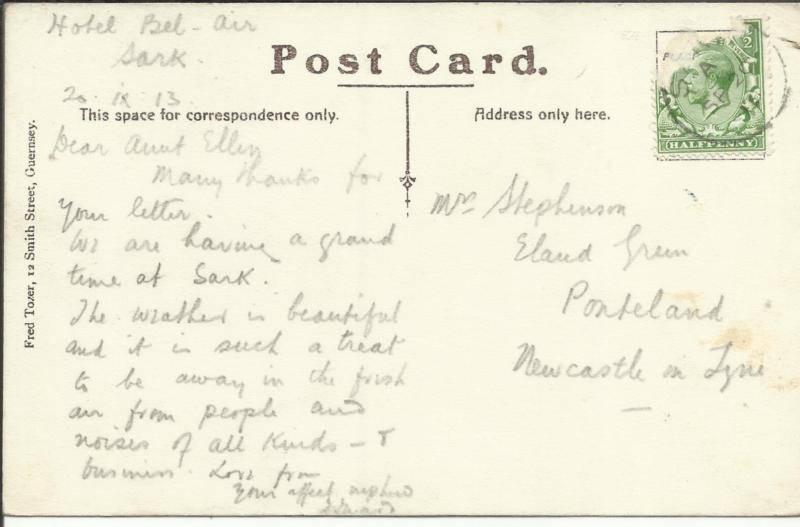 Hotel Bel-Air
Sark.
20 IX 13
Post Card.
This space for correspondence only.
Address only here.
Dear Aunt Ellen
Many thanks for
your letter.
We are having a grand
time at Sark.
The weather is beautiful
and it is such a treat
to be away in the fresh
air from people and
noises of all kinds - &
business. Love from
your affect. nephew
Edward
Mrs Stephenson
Eland Green
Ponteland
Newcastle on Tyne
Fred Tozer, 12 Smith Street, Guernsey.
1/2
SARK
HALFPENNY